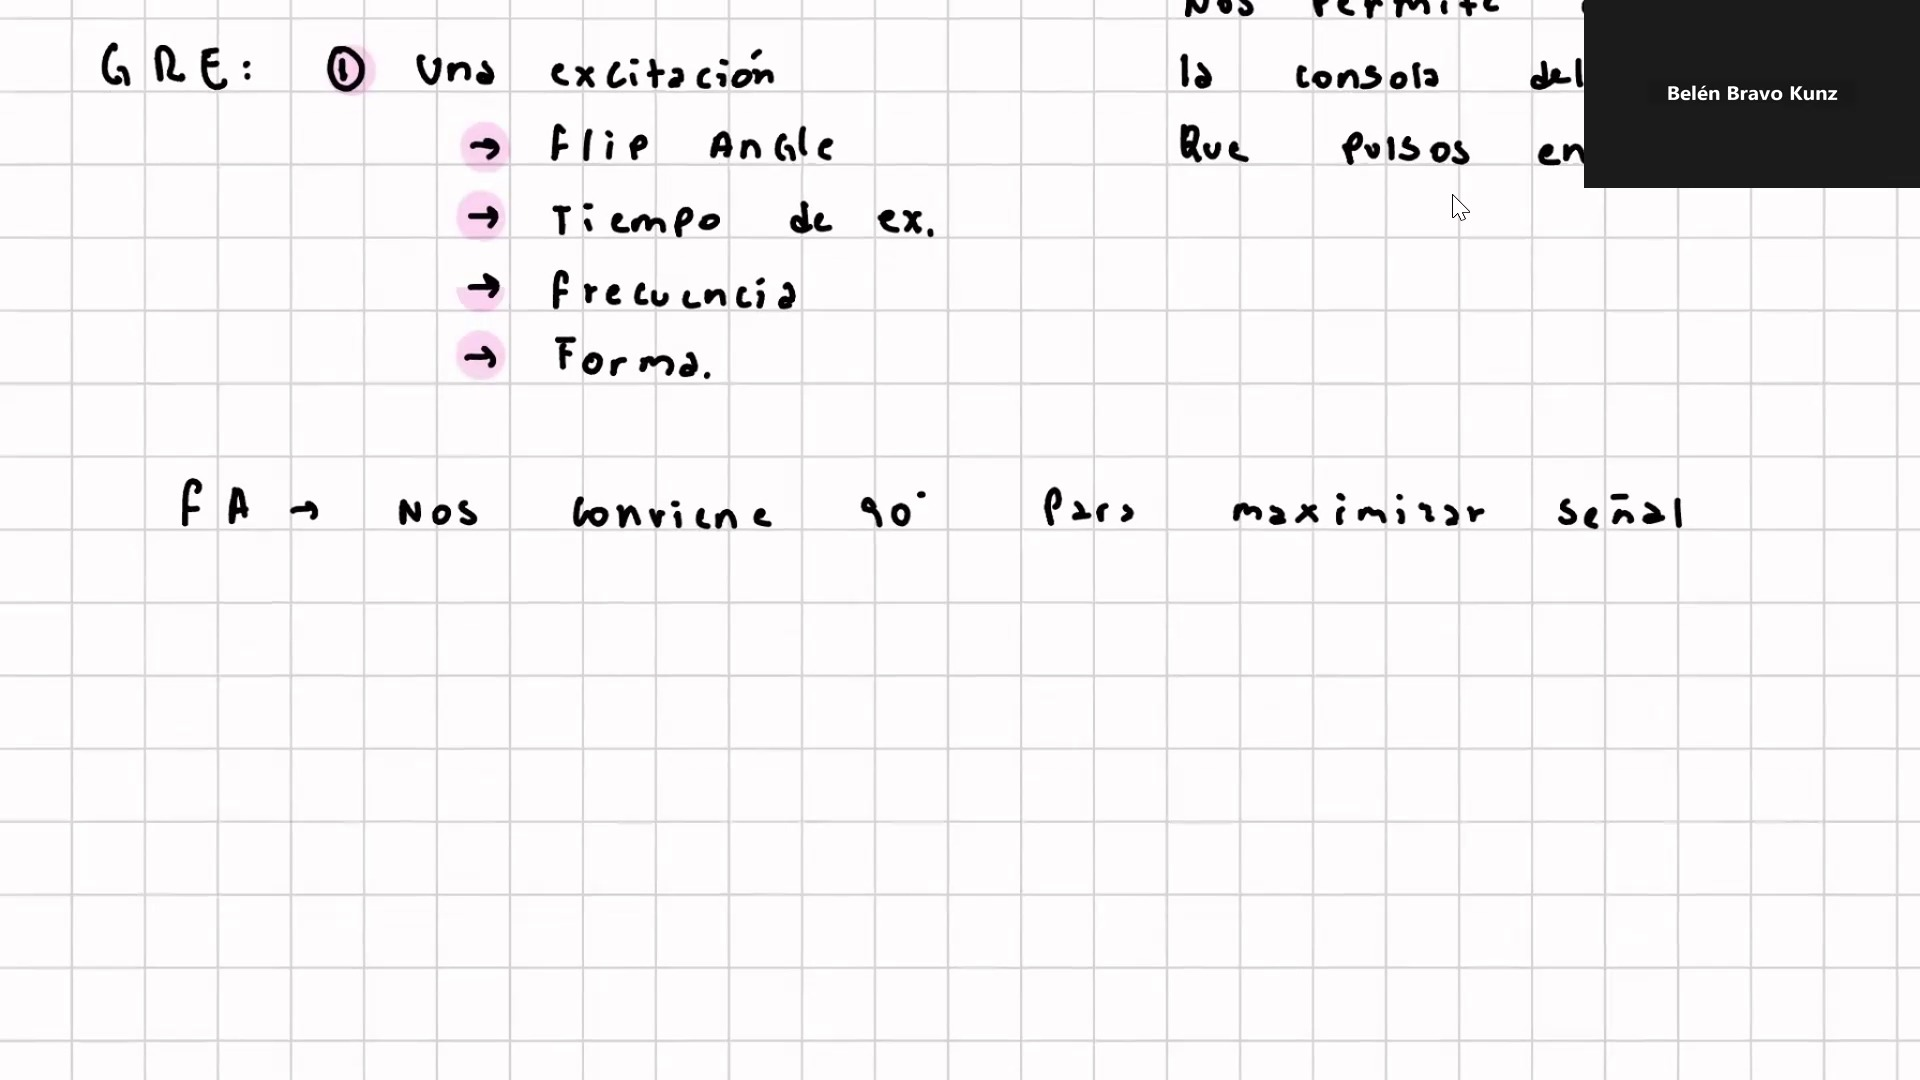 GRE: ① Una excitación
→ Flip Angle
→ Tiempo de ex.
→ frecuencia
→ Forma.
Nos permite
la consola del
Que pulsos en
Belén Bravo Kunz
FA → Nos conviene 90° para maximizar señal